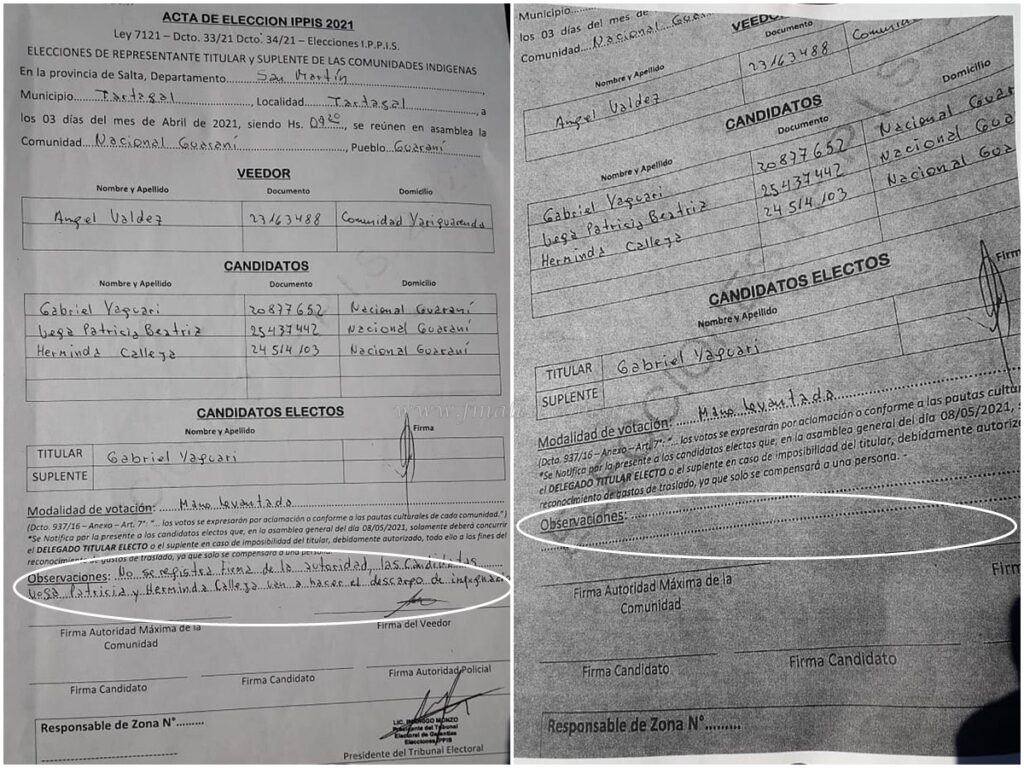 ACTA DE ELECCION IPPIS 2021
Ley 7121 – Dcto. 33/21 Dcto. 34/21 – Elecciones I.P.P.I.S.
ELECCIONES DE REPRESENTANTE TITULAR y SUPLENTE DE LAS COMUNIDADES INDIGENAS
En la provincia de Salta, Departamento San Martín
Municipio Tartagal, Localidad Tartagal, a
los 03 días del mes de Abril de 2021, siendo Hs. 09:20, se reúnen en asamblea la
Comunidad Nacional Guaraní, Pueblo Guaraní
VEEDOR
Nombre y Apellido Documento Domicilio
Angel Valdez 23163488 Comunidad Yariguarenda
CANDIDATOS
Nombre y Apellido Documento Domicilio
Gabriel Yaguari 20877652 Nacional Guaraní
Vega Patricia Beatriz 25437442 Nacional Guaraní
Herminda Calleja 24514103 Nacional Guaraní
CANDIDATOS ELECTOS
Nombre y Apellido Firma
TITULAR Gabriel Yaguari
SUPLENTE
Modalidad de votación: Mano levantada
(Dcto. 937/16 – Anexo – Art. 7°: "... los votos se expresarán por aclamación o conforme a las pautas culturales de cada comunidad.")
*Se Notifica por la presente a los candidatos electos que, en la asamblea general del día 08/05/2021, solamente deberá concurrir
el DELEGADO TITULAR ELECTO o el suplente en caso de imposibilidad del titular, debidamente autorizado, todo ello a los fines del
reconocimiento de gastos de traslado, ya que solo se compensará a una persona.
Observaciones: No se registra firma de la autoridad, las Candidatas
Vega Patricia y Herminda Calleja van a hacer el descargo de
Firma Autoridad Máxima de la Comunidad Firma del Veedor
Firma Candidato Firma Candidato Firma Autoridad Policial
Responsable de Zona N°.........
Presidente del Tribunal
Electoral de Garantías
Elecciones IPPIS
Presidente del Tribunal Electoral
Municipio
los 03 días del mes de
Comunidad Nacional Guaraní
VEEDOR
Nombre y Apellido Documento
Angel Valdez 23163488 Comunidad
CANDIDATOS
Nombre y Apellido Documento Domicilio
Gabriel Yaguari 20877652 Nacional
Vega Patricia Beatriz 25437442 Nacional
Herminda Calleja 24514103 Nacional
CANDIDATOS ELECTOS
Nombre y Apellido Firm
TITULAR Gabriel Yaguari
SUPLENTE
Modalidad de votación: Mano levantada
(Dcto. 937/16 – Anexo – Art. 7°: "... los votos se expresarán por aclamación o conforme a las pautas cultur
*Se Notifica por la presente a los candidatos electos que, en la asamblea general del día 08/05/2021, s
el DELEGADO TITULAR ELECTO o el suplente en caso de imposibilidad del titular, debidamente autoriza
reconocimiento de gastos de traslado, ya que solo se compensará a una persona. -
Observaciones:
Firma Autoridad Máxima de la
Comunidad
Firma Candidato Firma Candidato
Responsable de Zona N°.........